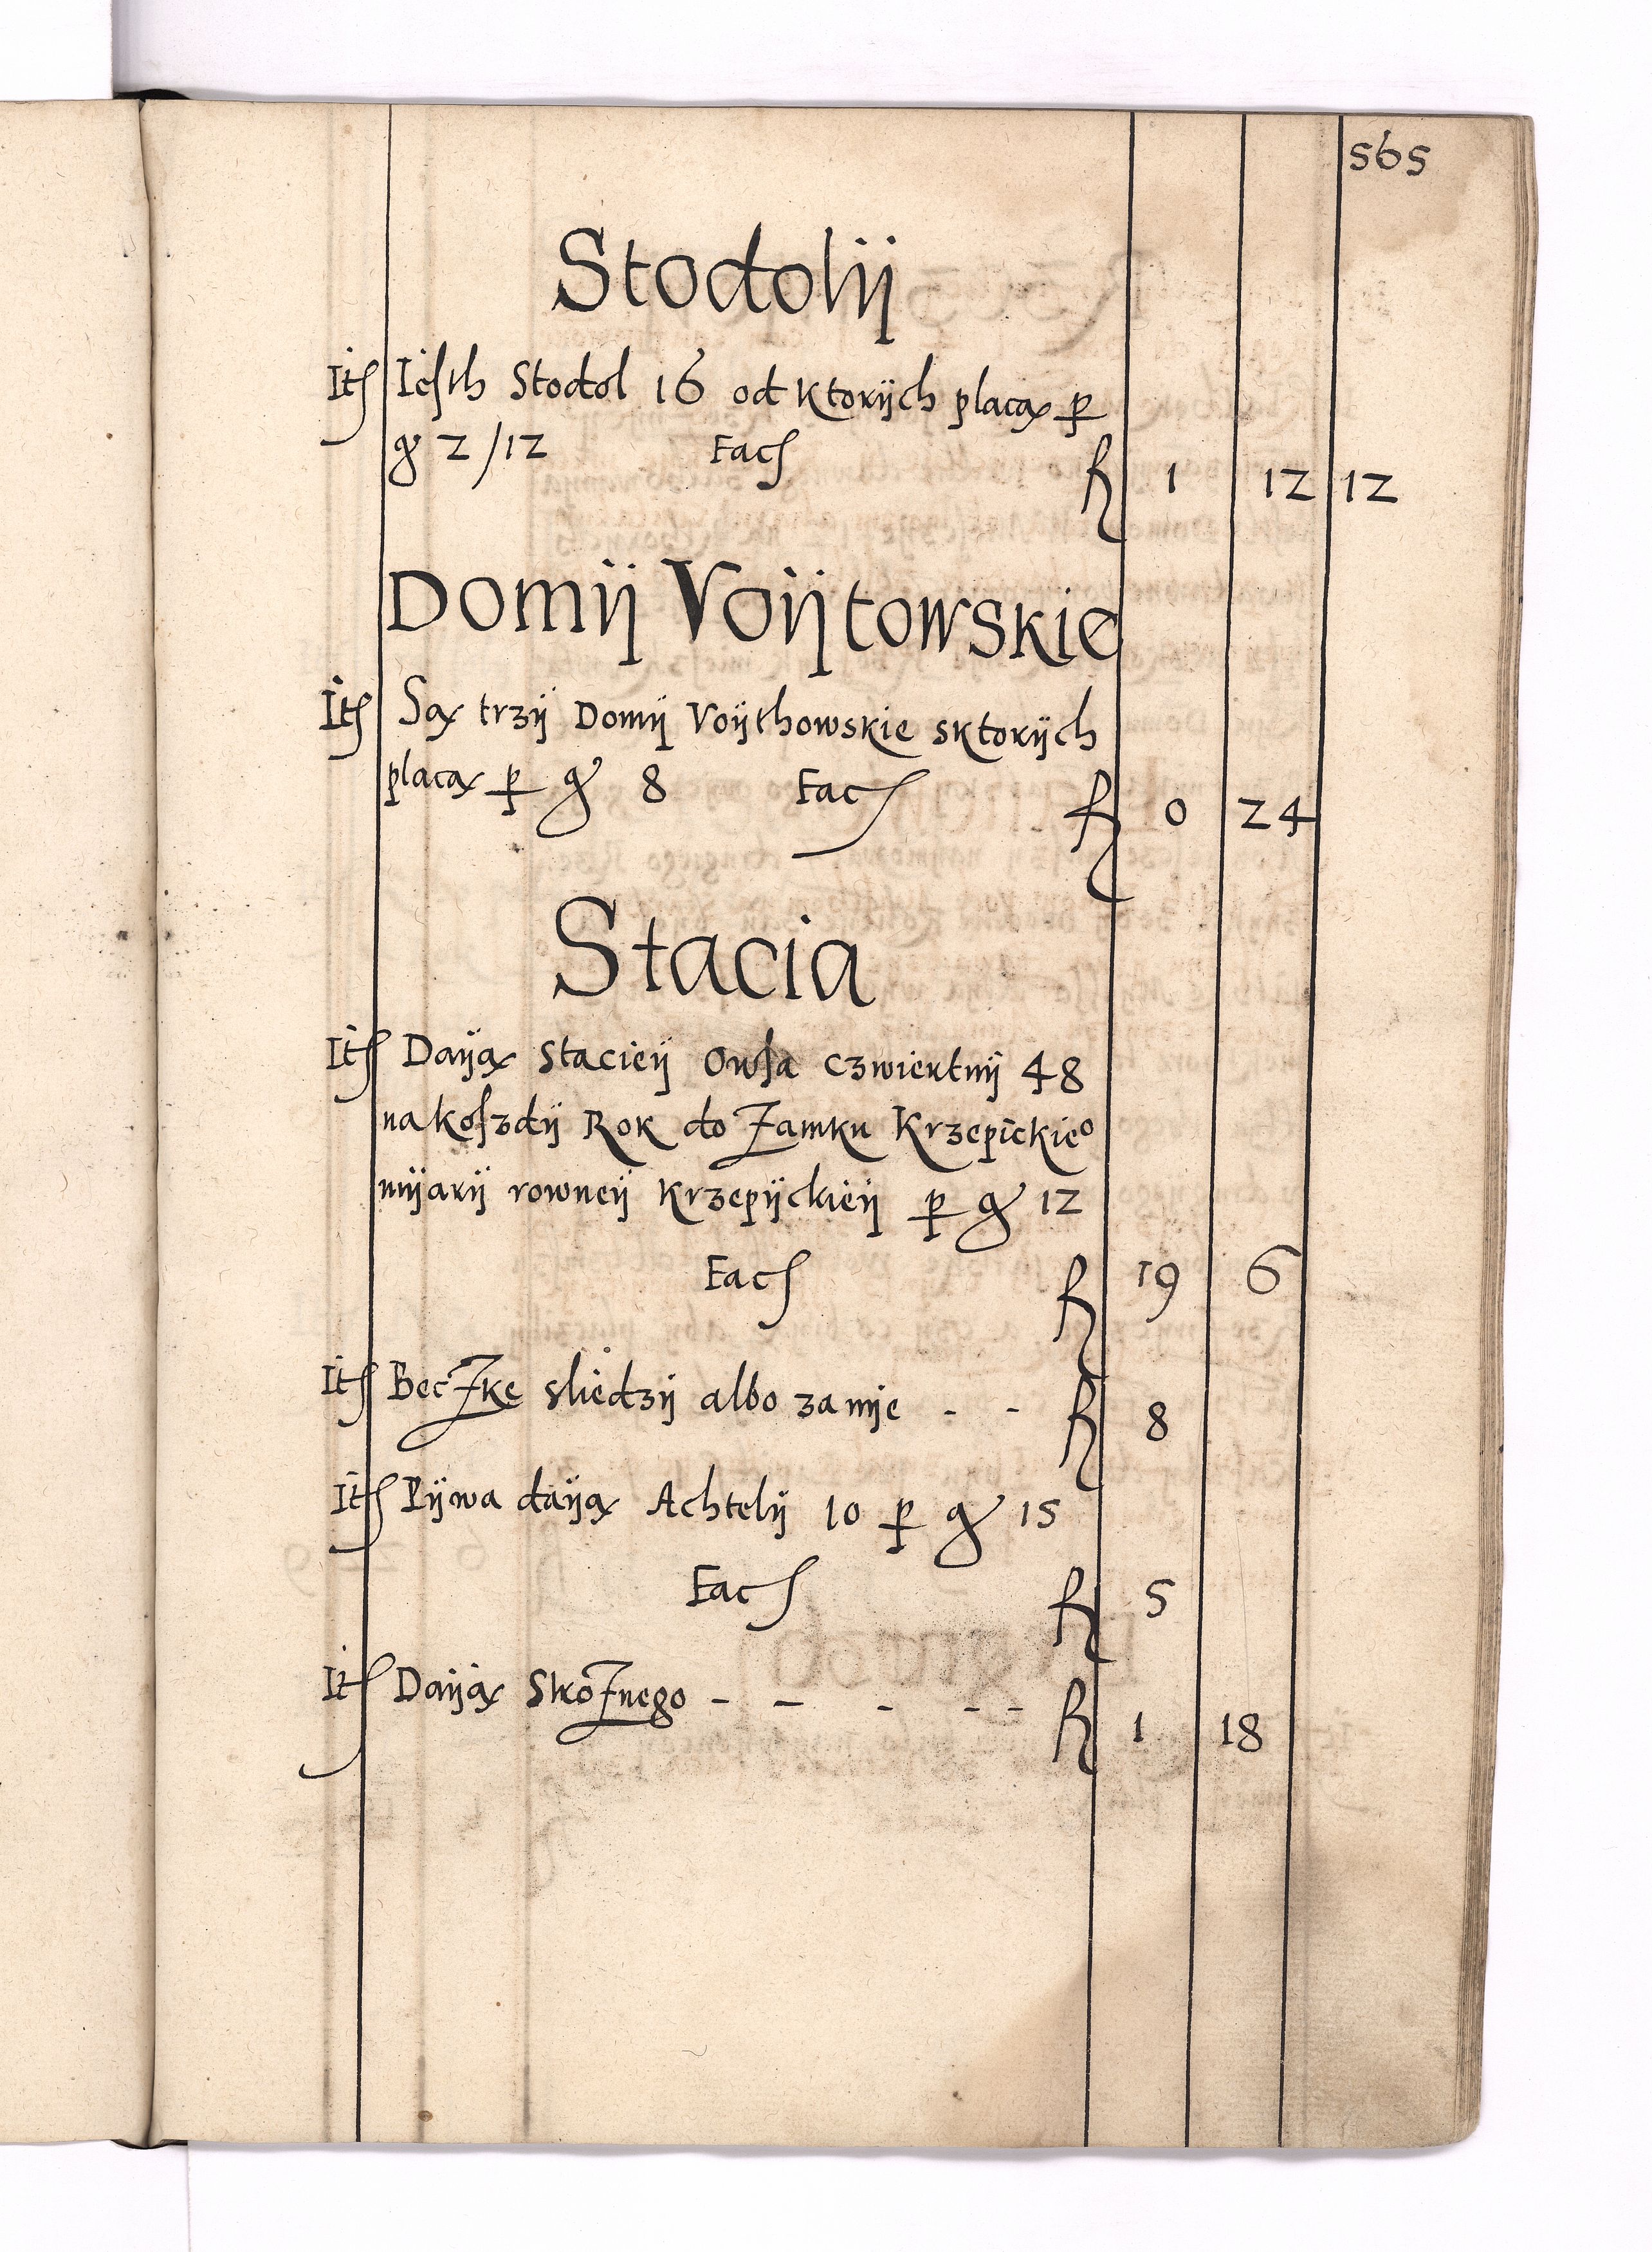 565
Stodolÿ
Itſ Ieſth Stodol 16 od Ktorÿch placą p
gͬ 2/12 Facſ fl 1 12 12
Domÿ Voÿtowskie
Itſ Są trzÿ Domÿ Voÿthowskie sktorÿch
placą p gͬ 8 Facſ fl 0 24
Stacia
Itſ Daÿą Stacieÿ Owſa Czwiertnÿ 48
na koſzdÿ Rok do Zamku Krzepickieº
mÿarÿ rowneÿ Krzepÿckieÿ p gͬ 12
Facſ fl 19 6
Itſ Beczke sliedzÿ albo za nÿe - - fl 8
Itſ Pÿwa daÿą Achtelÿ 10 p gͬ 15
Facſ fl 5
Itſ Daÿą Strożnego - - - - - fl 1 18